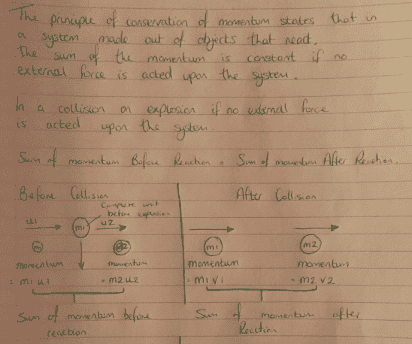 The principle of conservation of momentum states that in
a system made out of objects that react.
The sum of the momentum is constant if no
external force is acted upon the system.
In a collision or explosion if no external force
is acted upon the system
Sum of momentum Before Reaction = Sum of momentum After Reaction
Before Collision
After Collision
Complete unit
before explosion
u1
m1
u2
m2
momentum
= m1 u1
momentum
= m2 u2
Sum of momentum before
reaction
m1
m2
momentum
= m1 v1
momentum
= m2 v2
Sum of momentum after
Reaction